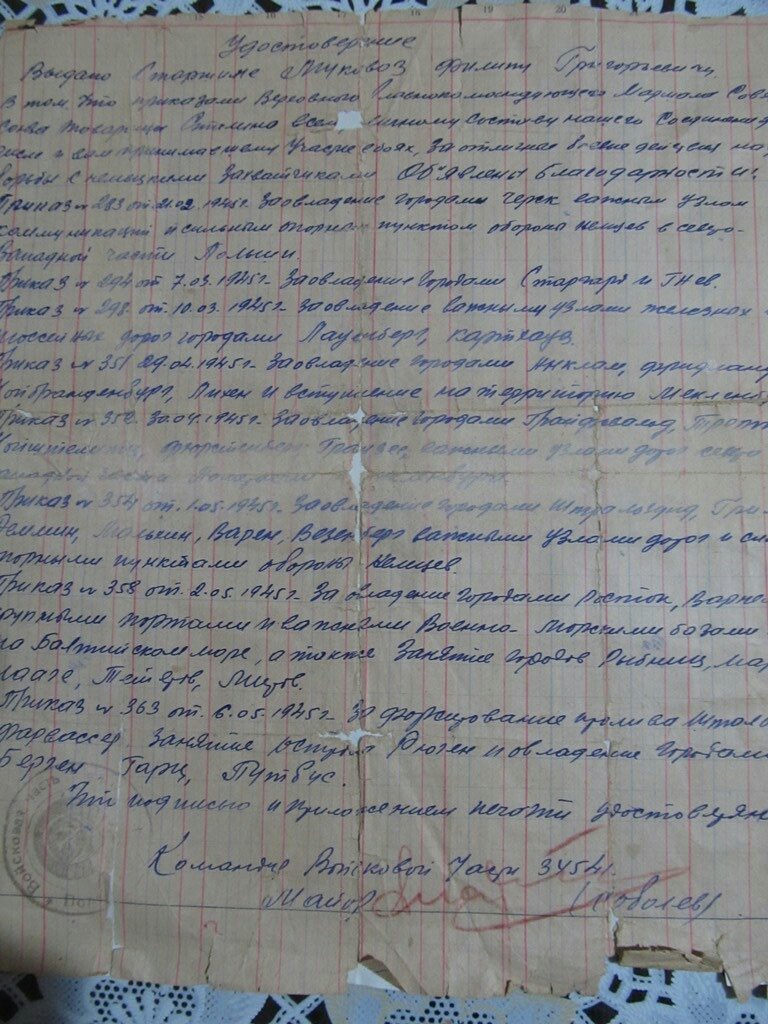 15 16 17 18 19 20 21
Удостоверение
Выдано Старшине Муковоз Филипу Григорьевичу
в том, что приказами Верховного Главнокомандующего Маршала Сов
Союза товарища Сталина всему личному составу нашего Соединения
числе и ему принимавшему участие в боях, За отличные боевые действия
борьбы с немецкими Захватчиками Объявлены благодарности:
Приказ № 283 от 21.02.1945г. За овладение городами Черск важным узлом
коммуникаций и сильным опорным пунктом обороны немцев в северо-
Западной части Польши.
Приказ № 294 от 7.03.1945г. За овладение городами Старгард и Гнев.
Приказ № 298 от 10.03.1945г. За овладение важными узлами железных
шоссейных дорог городами Лауенберг, Картхауз.
Приказ № 351 29.04.1945г. За овладение городами Анклам, Фридланд
Нойбранденбург, Лихен и вступление на территорию Мекленб
Приказ № 352 30.04.1945г. За овладение городами Грайфсвальд, Трепт
Нойштрелиц, Фюрстенберг, Гранзее важными узлами дорог северо
западной части
Приказ № 354 от 1.05.1945г. За овладение городами Штральзунд, Грим
Деммин, Мальхин, Варен, Везенберг важными узлами дорог и си
порными пунктами обороны Немцев.
Приказ № 358 от 2.05.1945г. За овладение городами Росток, Варне
крупными портами и важными Военно-Морскими базами
на Балтийском море, а также Занятие городов Рыбниц, Мар
Лааге, Тетеров, Миров.
Приказ № 363 от 6.05.1945г. За форсирование пролива Штраль
Фарвассер Занятие острова Рюген и овладение городами
Берген Гарц, Путбус.
Что подписью и приложением печати удостоверяе
Командир Войсковой Части 34541.
Майор (Соболев)
Войсковая часть